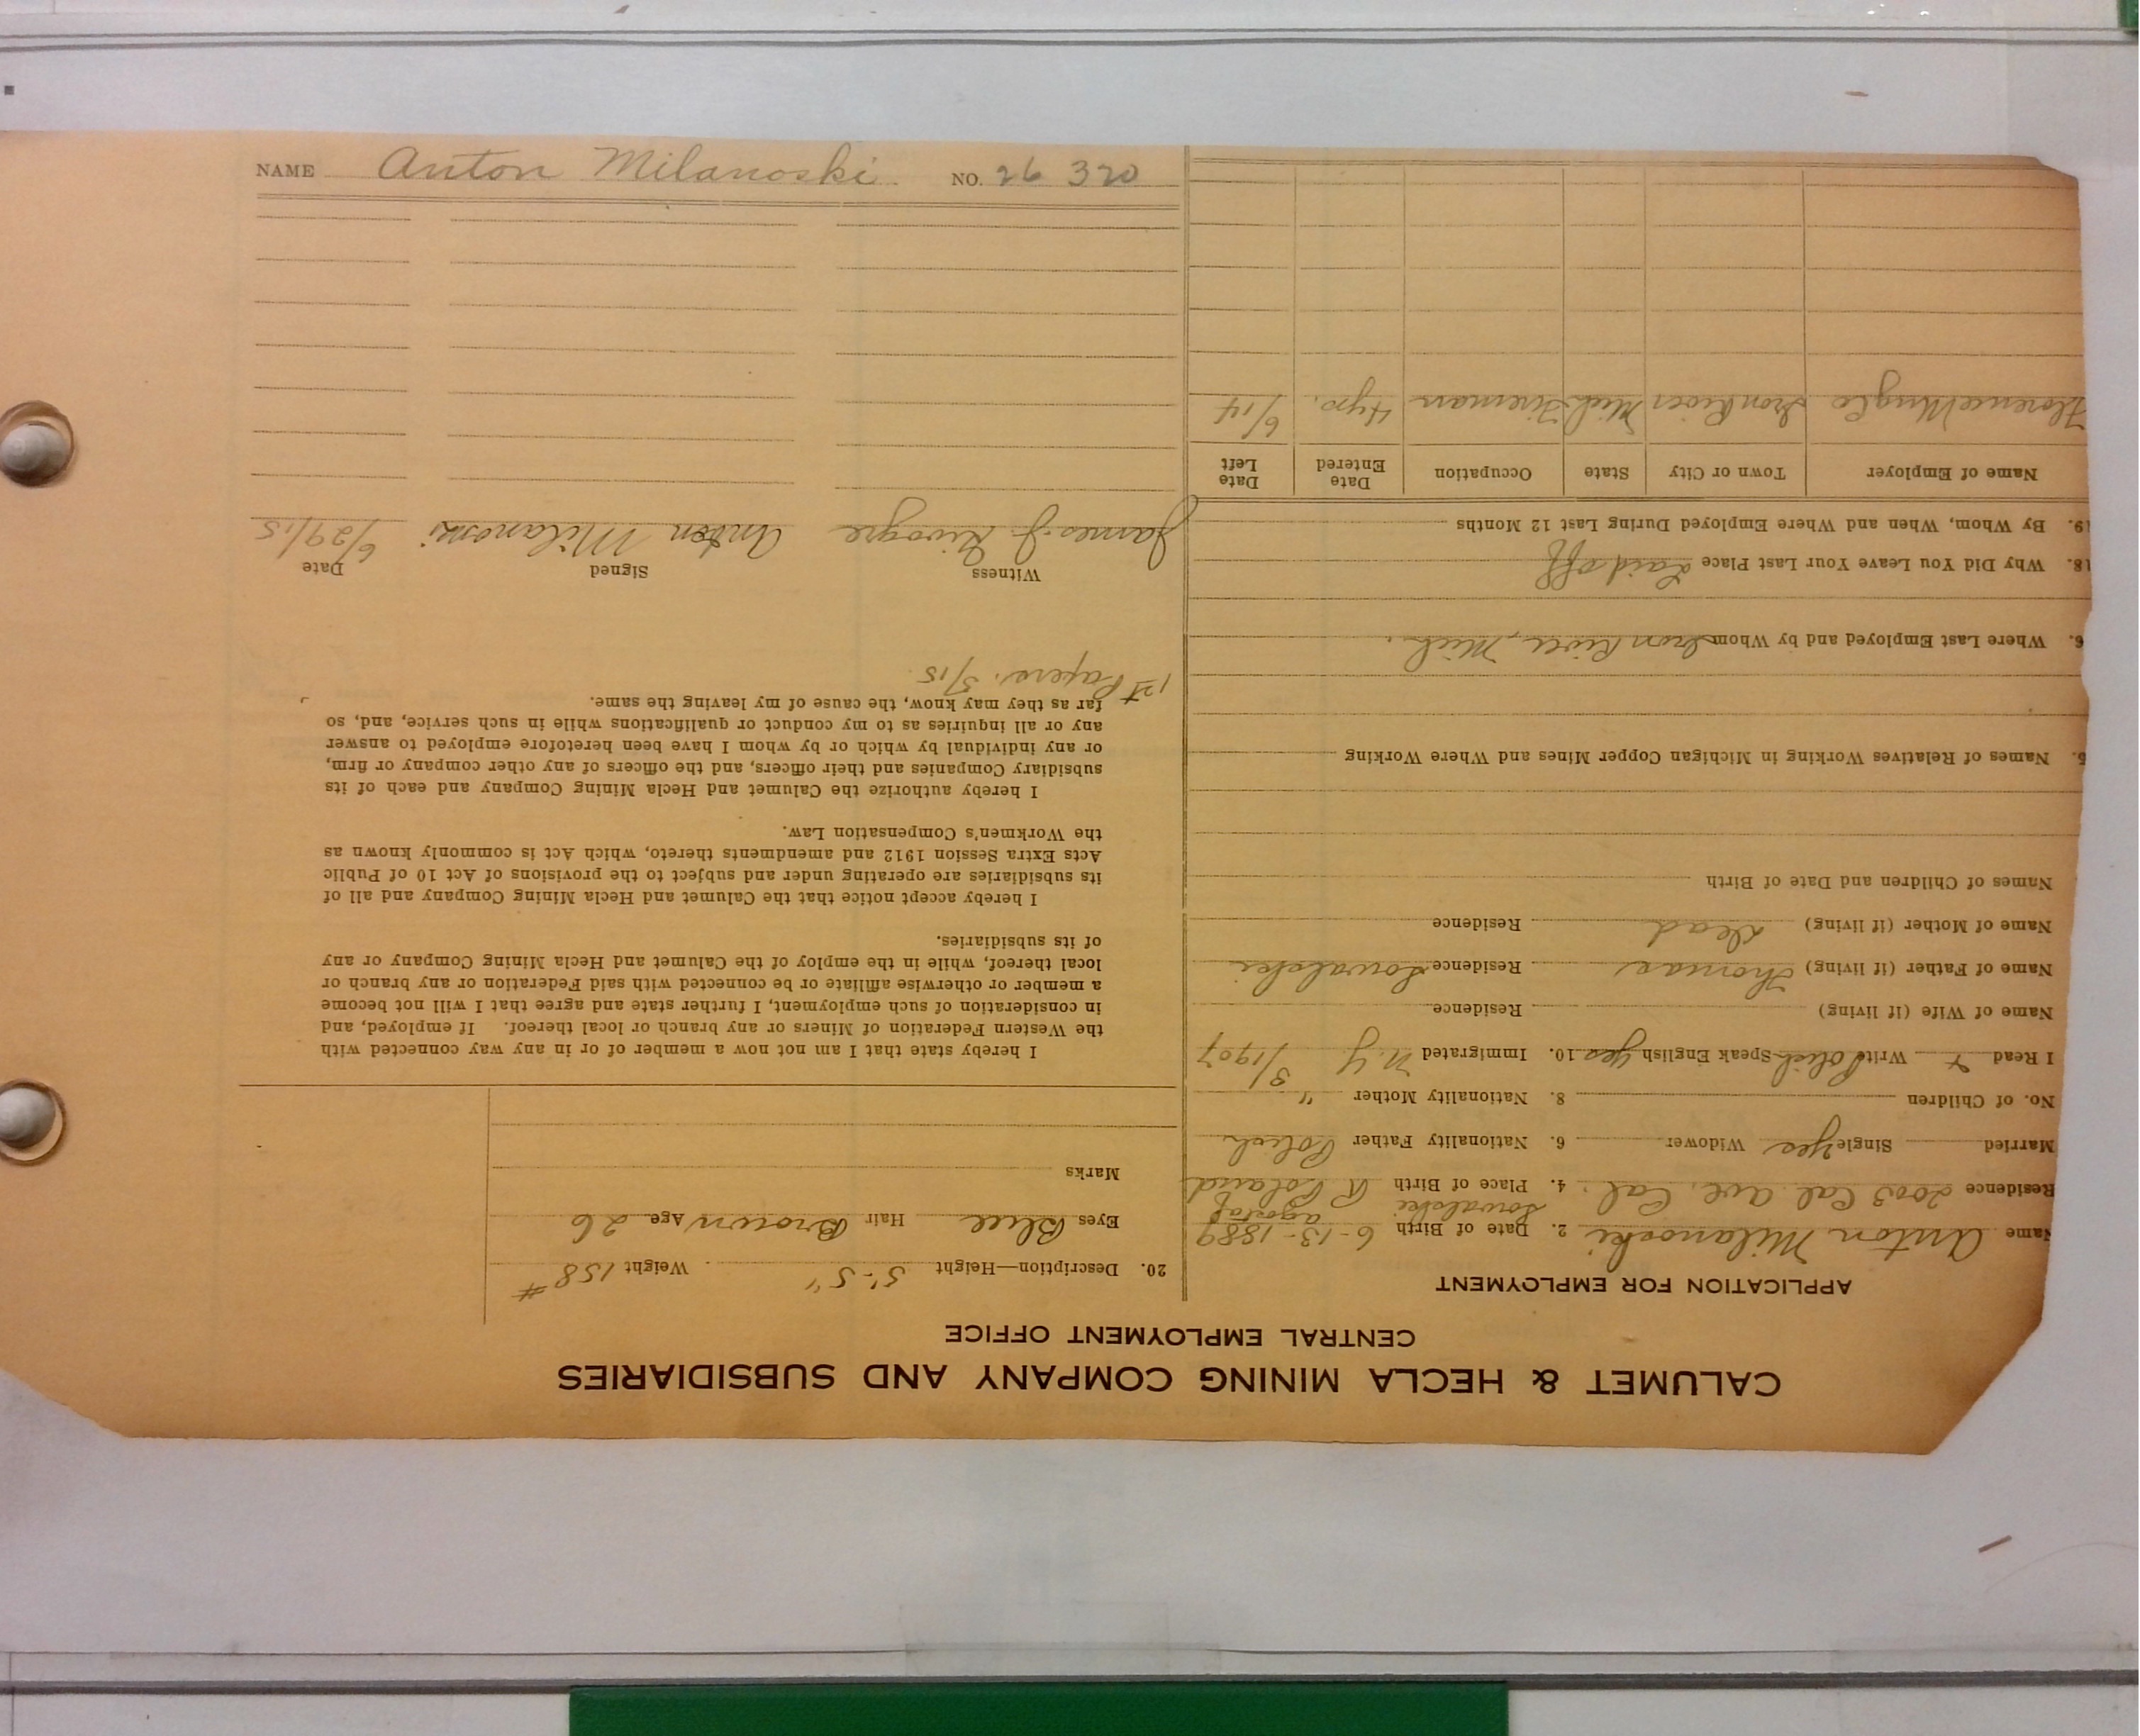 CALUMET & HECLA MINING COMPANY AND SUBSIDIARIES
CENTRAL EMPLOYMENT OFFICE
APPLICATION FOR EMPLOYMENT
Name Anton Milanoski 2. Date of Birth 6-13-1889
Residence 2003 Cal. Ave. Cal. 4. Place of Birth R Poland
Married Single Yes Widower 6. Nationality Father Polish
No. of Children 8. Nationality Mother "
I Read + Write Polish Speak English yes 10. Immigrated N.Y. 3/1907
Name of Wife (if living) Residence
Name of Father (if living) Thomas Residence Sowalski
Name of Mother (if living) Dead Residence
Names of Children and Date of Birth
5. Names of Relatives Working in Michigan Copper Mines and Where Working
6. Where Last Employed and by Whom Iron River, Mich.
18. Why Did You Leave Your Last Place Laid off
19. By Whom, When and Where Employed During Last 12 Months
Name of Employer Town or City State Occupation Date Entered Date Left
Florence Mng Co Iron River Mich Fireman 4 yrs. 6/14
20. Description—Height 5'-5" Weight 158#
Eyes Blue Hair Brown Age 26
Marks
I hereby state that I am not now a member of or in any way connected with
the Western Federation of Miners or any branch or local thereof. If employed, and
in consideration of such employment, I further state and agree that I will not become
a member or otherwise affiliate or be connected with said Federation or any branch or
local thereof, while in the employ of the Calumet and Hecla Mining Company or any
of its subsidiaries.
I hereby accept notice that the Calumet and Hecla Mining Company and all of
its subsidiaries are operating under and subject to the provisions of Act 10 of Public
Acts Extra Session 1912 and amendments thereto, which Act is commonly known as
the Workmen's Compensation Law.
I hereby authorize the Calumet and Hecla Mining Company and each of its
subsidiary Companies and their officers, and the officers of any other company or firm,
or any individual by which or by whom I have been heretofore employed to answer
any or all inquiries as to my conduct or qualifications while in such service, and, so
far as they may know, the cause of my leaving the same.
1st Papers. 5/15
Witness Signed Date
James J. Anton Milanoski 6/29/15
NAME Anton Milanoski. NO. 26 320